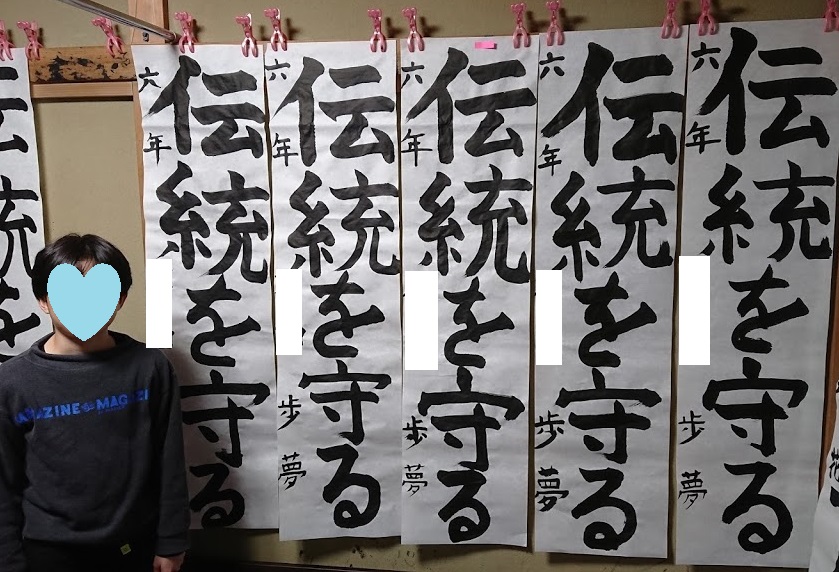 伝統を守る
六年
歩夢
伝統を守る
六年
歩夢
伝統を守る
六年
歩夢
伝統を守る
六年
歩夢
伝統を守る
六年
統を
MAGAZINE
MAGAZI